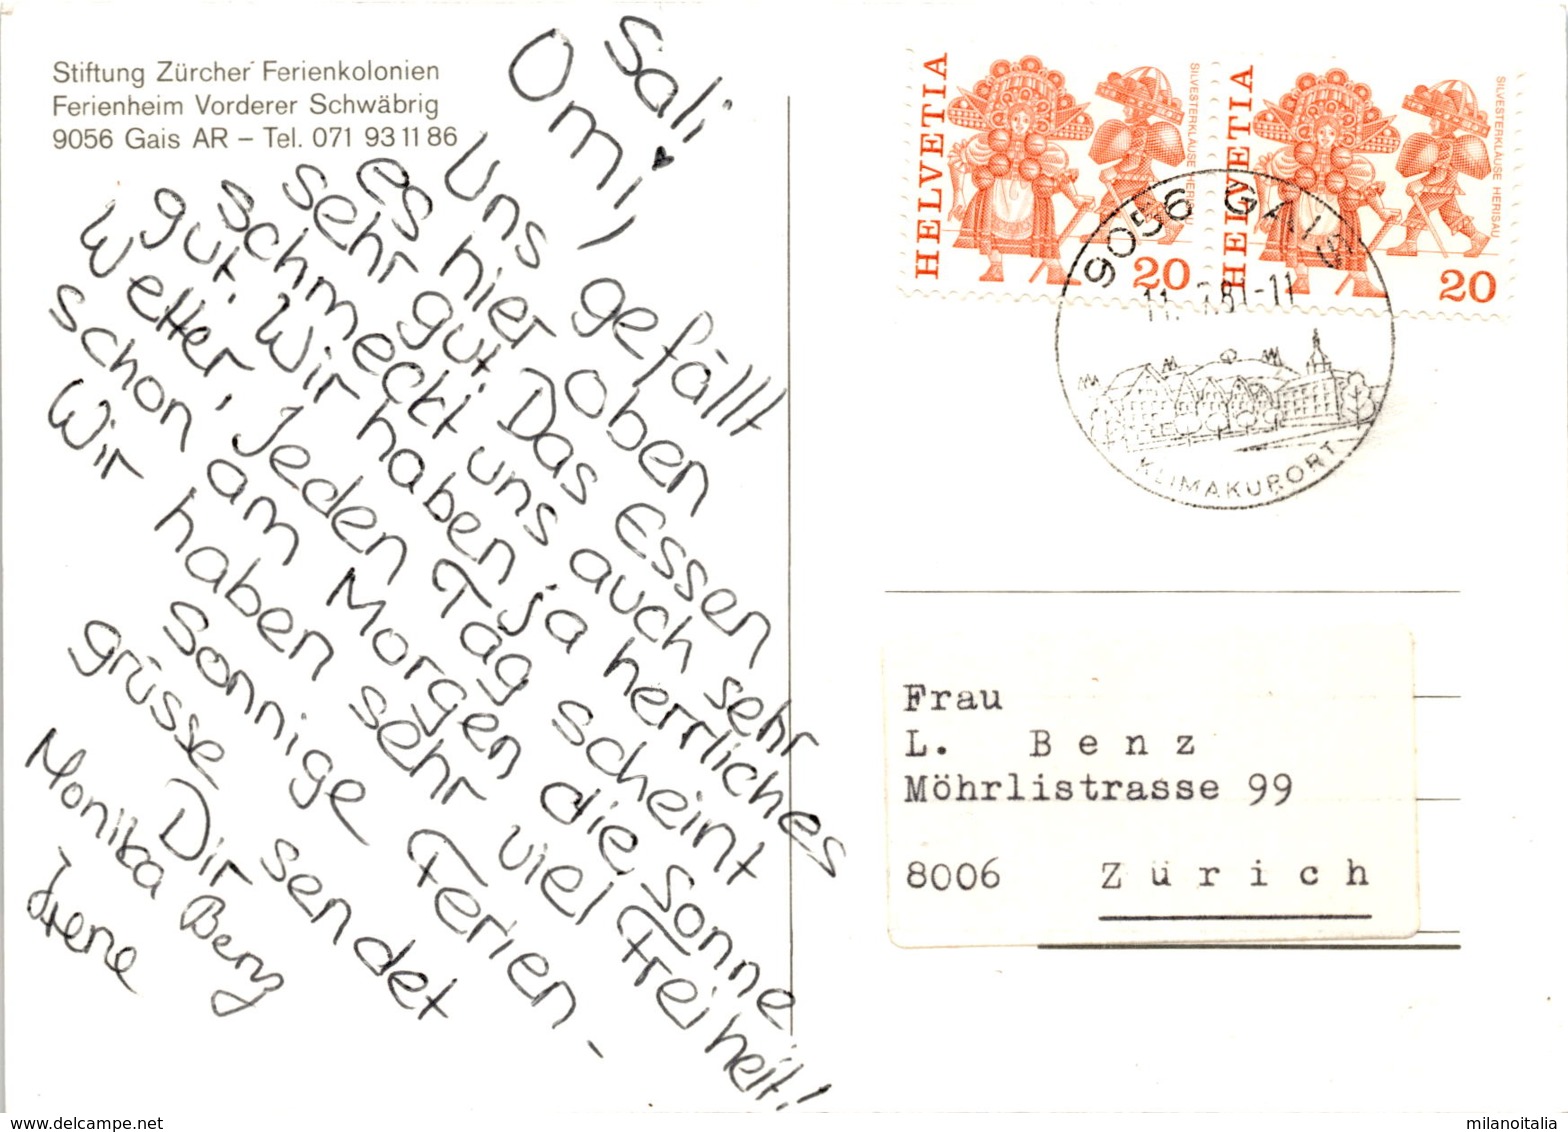 Stiftung Zürcher Ferienkolonien
Ferienheim Vorderer Schwäbrig
9056 Gais AR – Tel. 071 93 11 86
Sali
Omi!
Uns gefällt
es hier oben
sehr gut. Das Essen
schmeckt uns auch sehr
gut. Wir haben ja herrliches
Wetter, Jeden Tag scheint
schon am Morgen die Sonne
Wir haben sehr viel Freiheit!
Sonnige Ferien-
grüsse Dir sendet
Monika Benz
Irene
HELVETIA
SILVESTERKLÄUSE HERISAU
20
HELVETIA
SILVESTERKLÄUSE HERISAU
20
9056 GAIS
81-11
KLIMAKURORT
Frau
L. Benz
Möhrlistrasse 99
8006 Zürich
www.delcampe.net
milanoitalia